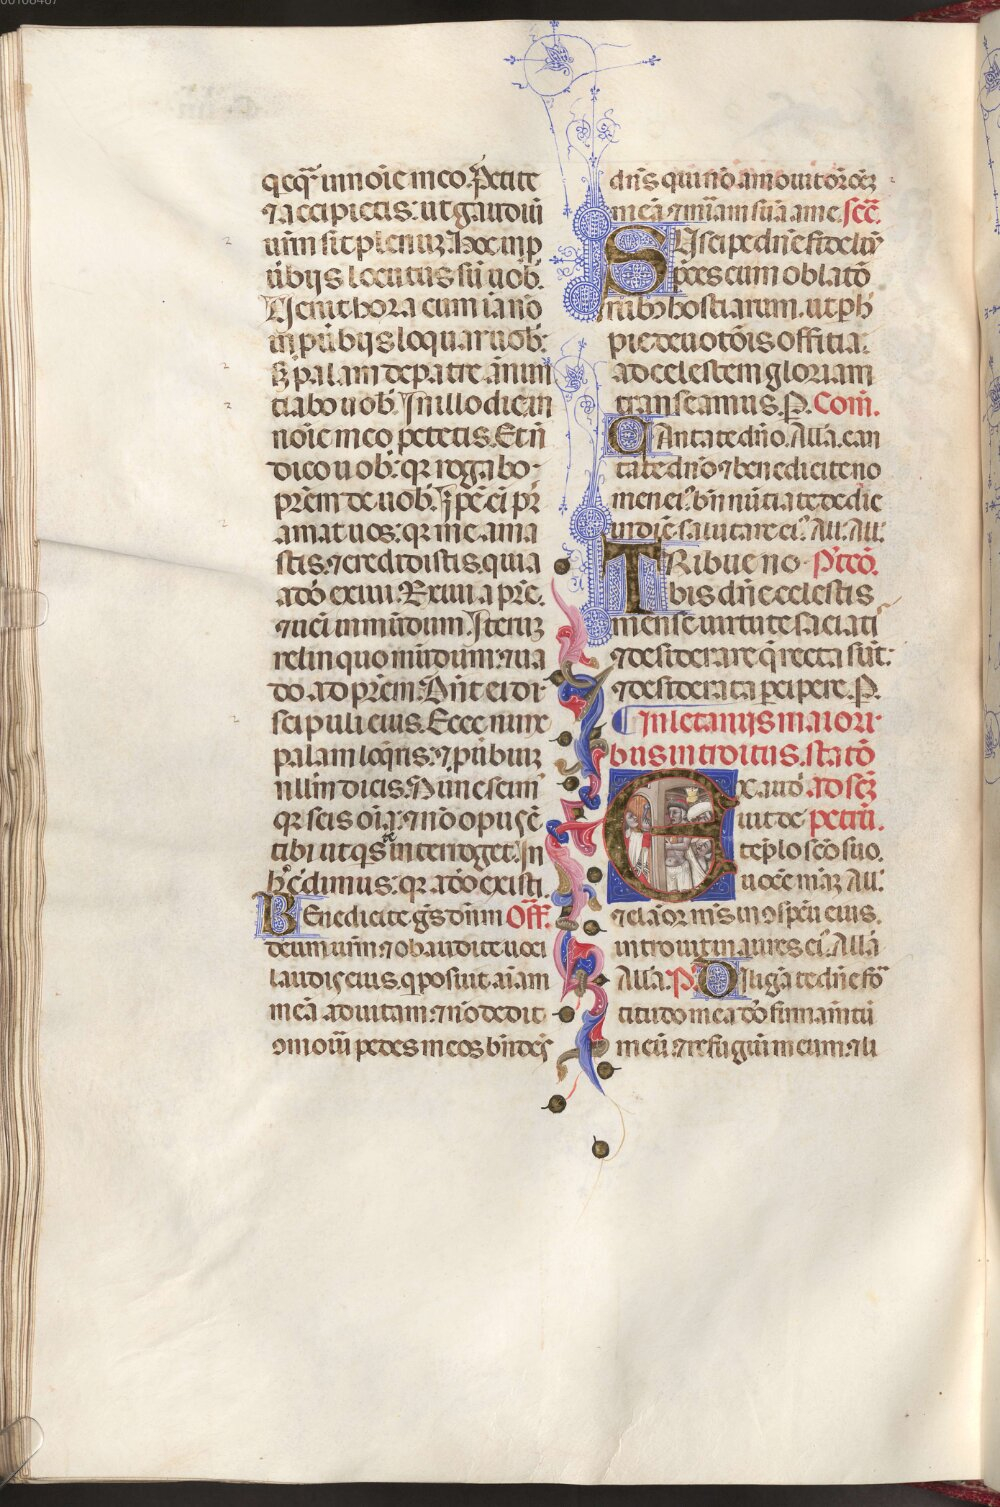 qcq̃ in noīe meo. Petite
⁊ accipietis: ut gaudiū
ur̃m sit plenuꝫ. Hoc in ꝓ
ūbijs locutus sū uob̃.
Uenit hora cum iā nō
in ꝓūbijs loquar uob̃:
sꝫ palam de patre ānun
ciabo uob̃. In illo die in
noīe meo petetis. Et n̄
dico uob̃: qꝛ rogabo
pr̃em de uob̃. Ip̄e ei pr̃
amat uos: qꝛ me ama
stis. ⁊ credidistis. quia
a dō exiui. Exiui a pr̃e.
⁊ uei in mūdum. Iteruꝫ
relinquo mūdum: ⁊ ua
do ad pr̃em. Dn̄t ei di
scipuli eius. Ecce nunc
palam loq̃ris: ⁊ ꝓūbiuꝫ
nllm̄ dicis. Nunc scim̄
qꝛ scis oīa: ⁊ nō opus ē
tibi ut qs te interroget. In
h̄ c̄dimus: qꝛ a dō existi.
BEnedicite gēs dn̄m Off̄.
deum nr̃m ⁊ obaudite uoci
laudis eius. q posuit aīam
meā ad uitam: ⁊ nō dedit
ōmoūi pedes meos bn̄dc̄s
dn̄s qui nō amouit or̄oꝫ
meā ⁊ mīam suā a me. Sec̄.
SUscipe dn̄e fideliū
p̄ces cum oblatō
nibꝫ hostiarum. ut ꝑ h̄
pie deuotōis officia.
ad celestem gloriam
transeamus. P. Com̄.
CAntate dn̄o. Alla. can
tate dn̄o ⁊ benedicite no
men eiꝰ bn̄ nūciate de die
in diē salutare eiꝰ. All. All.
TRibue no P̄tcō.
bis dn̄e celestis
mense uirtute saciati
⁊ desiderare q̄ recta sūt:
⁊ desiderata ꝑcipere. P.
In letanijs maiori
bus introitus. statō
Exaudi ad scm̄
uit de petrū.
templo scō suo.
uocē meā Alla.
⁊ clamor m̄s in ꝯspcū eius.
introiuit in aures eiꝰ. Alla
Alla. P. Diligā te dn̄e for
titudo mea dō firmam̄tū
meū ⁊ refugiū meum: ⁊ li